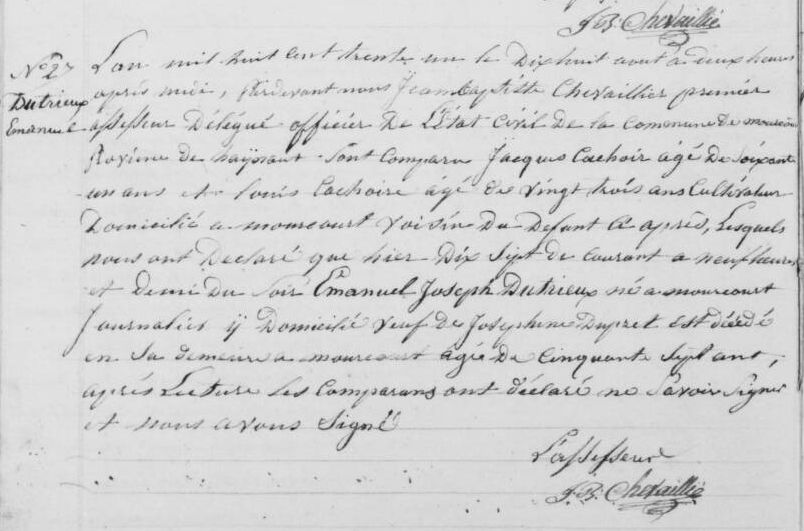 J.B. Chevaillié
N° 27
Dutrieux
Emanuel
L'an mil huit cent trente un le Dixhuit aout a deux heures
après midi, Pardevant nous Jeanbaptiste Chevaillier premier
assesseur Délégué officier De L'État Civil De la Commune de mourcourt
Province de haynaut Sont Comparu Jacques Cachoir âgé De Soixante
un ans et Louis Cachoire âgé de vingt trois ans Cultivateur
Domicilié a mourcourt Voisin Du Defunt Ci après, Lesquels
nous ont Déclaré que hier Dix Sept de Courant a neuf heures
et demi Du Soir Émanuel Joseph Dutrieux né a mourcourt
Journalier ij Domicilié veuf de Josephine Dupret est décédé
en Sa demeure a mourcourt âgé De Cinquante Sept ans,
après Lecture les Comparans ont déclaré ne Savoir Signer
et nous avons Signé
L'assesseur
J.B. Chevaillié